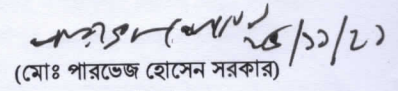 ২৫/১১/২১
(মোঃ পারভেজ হোসেন সরকার)